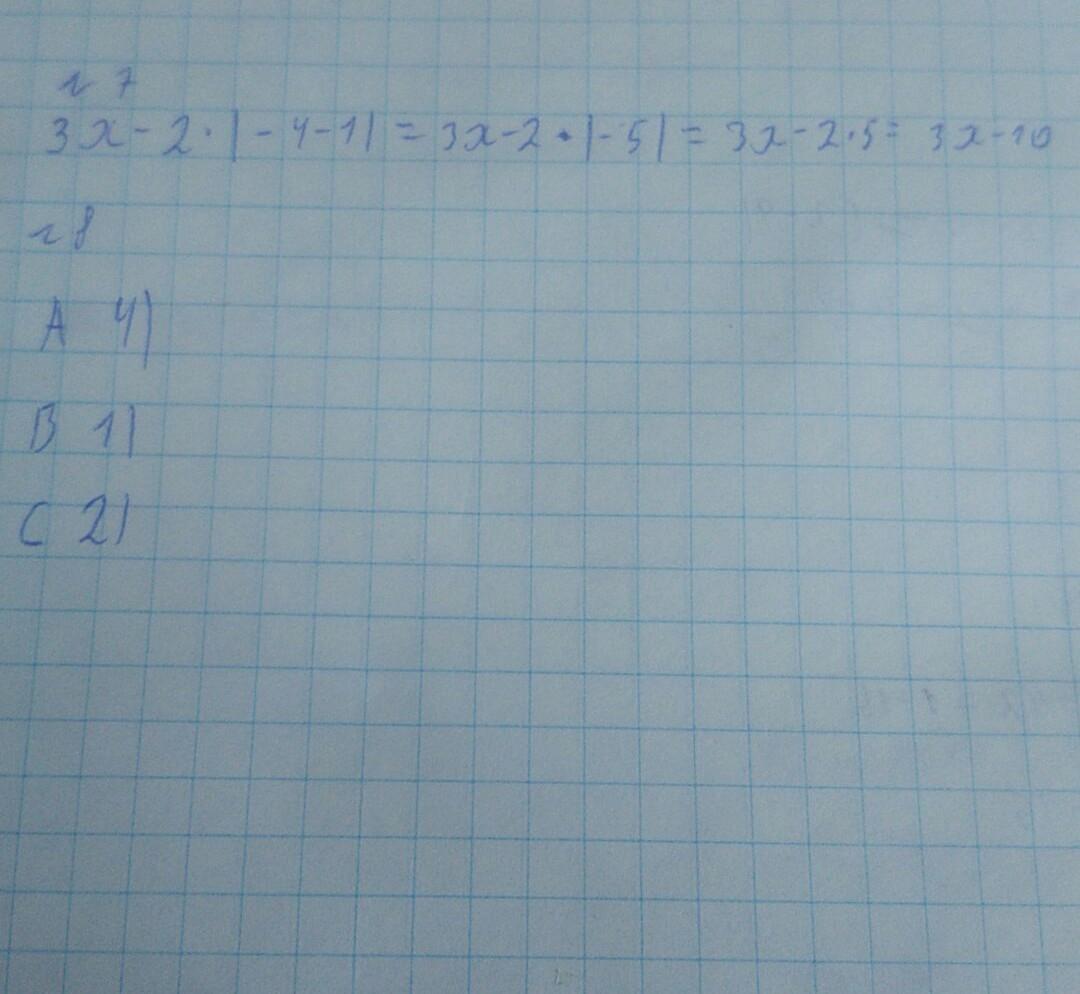 № 7
3x - 2 · |-4-1| = 3x-2 · |-5| = 3x-2·5= 3x-10
№ 8
A 4)
B 1)
C 2)